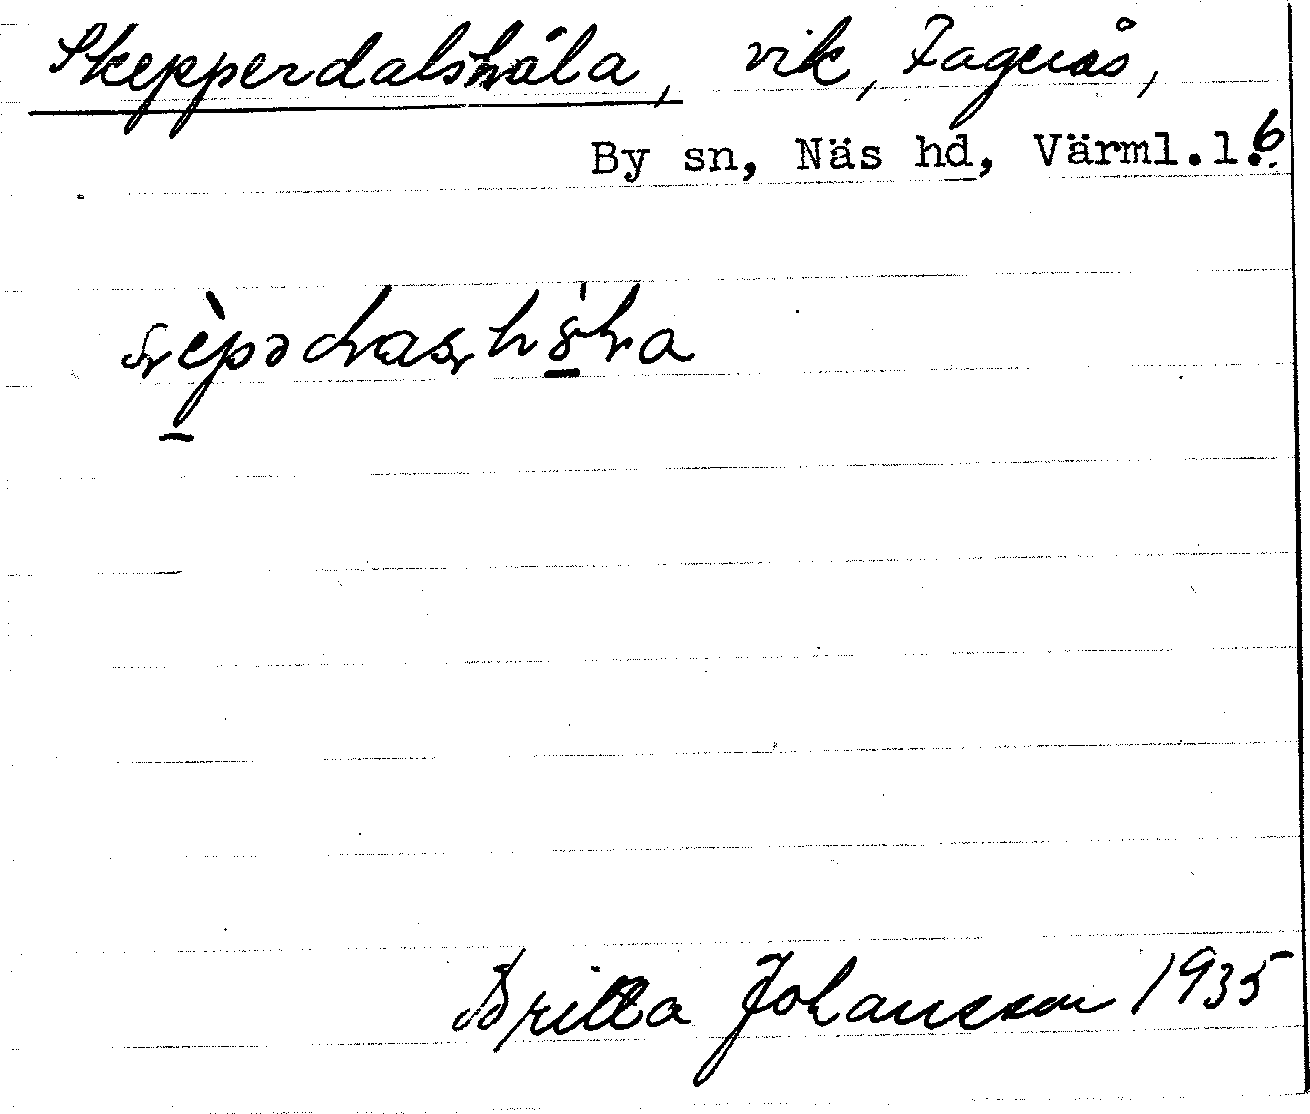 Skepperdalshåla, vik, Fagerås,
By sn, Näs hd, Värml.l.6
Britta Johansson 1935